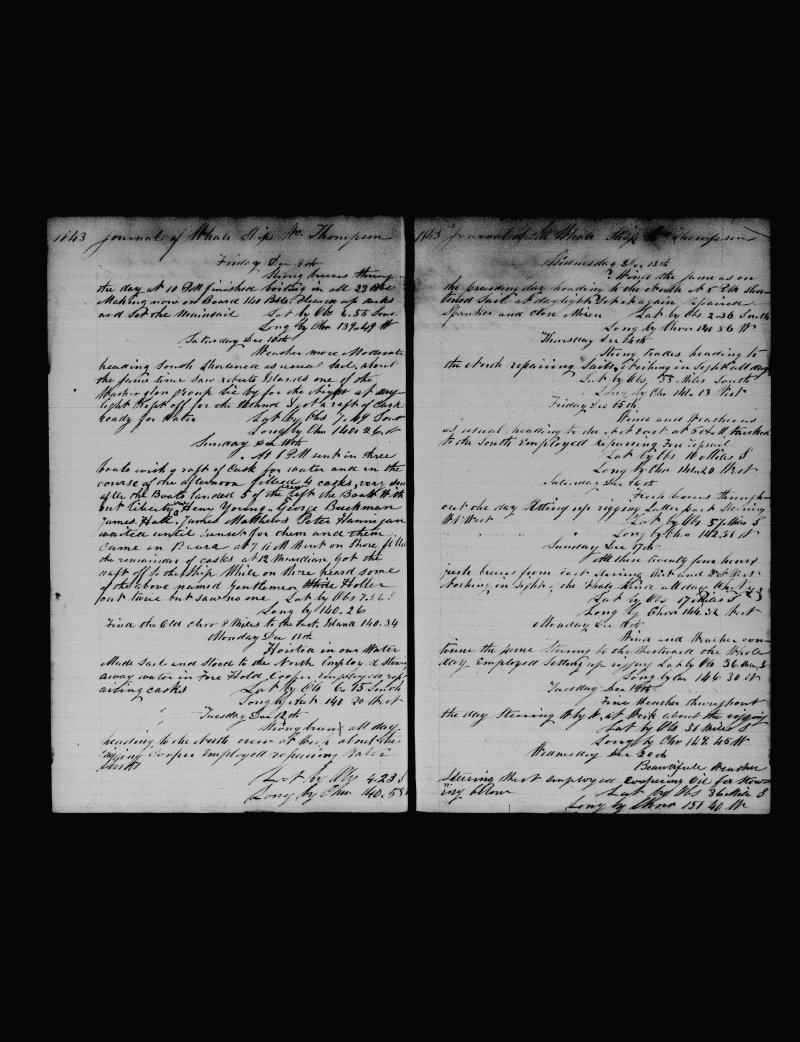 1843 Journal of Whale Ship Wm. Thompson
Friday Dec 8th
Strong breeses through
the day at 10 PM finished boiling in all 23 Bbls
Making now on Board 140 Bbls. Cleared up decks
and Set the Mainsail Lat by Obs 6.55 South
Long by Chr 139.49 W
Saturday Dec 9th
Weather more Moderate
heading South Shortened as usual Sail, about
the same time Saw Islands one of the
Washington group Lie by for the Night at day
light Kept off for the Island & got a raft of Cask
ready for Water Lat by Obs 7.47 South
Long by Chr 140.26 W
Sunday Dec 10th
At 1 PM sent in three
boats with a raft of Cask for water and in the
course of the afternoon filled casks, very soon
after the Boats landed 5 of the left the Boats With
out liberty Henry Young, George Buckman
James Hall, James Matthews Peter Flannigan
waited until Sunset for them and then
Came on Board at 7 AM Went on Shore filled
the remainder of casks at 12 Meridian Got the
raft off to the Ship While on Shore heard some
of the above named Gentlemen Holler
out twice but saw no one. Lat by Obs 7.56 S
Long by 140.26
Find the Old Chro 8 Miles to the East, Island 140.34
Monday Dec 11th
Hoisted in our Water
Made Sail and Stood to the North Employed Stowing
away water in Fore Hold, Cooper Employed rep
airing casks Lat by Obs 6.15 South
Long by 140 20 West
Tuesday Dec 12th
Strong breeses all day
heading to the North crew at Work about the
rigging Cooper Employed repairing Water
Casks
Lat by Obs 4.23 S
Long by Chro 140.58
1843 Journal of the Whale Ship Wm Thompson
Wednesday Dec 13th
Wind the same as on
the preceding day heading to the North At 5 PM Shor
tened Sail at daylight Set it again repaired
Spanker and Close Mizen Lat by Obs 2.36 South
Long by Chron 141 56 W
Thursday Dec 14th
Strong trades heading to
the North repairing Sails, Nothing in Sight all day
Lat by Obs, 53 Miles South
Long by Chr 141.13 West
Friday Dec 15th
Wind and Weather as
as usual heading to the East at 5 PM tacked
to the South Employed repairing Fore topsail
Lat by Obs 10 Miles S
Long by Chr 20 West
Saturday Dec 16th
Fresh breeses through
out the day Setting up rigging Latter part Steering
W N West Lat by Obs 57 Miles S
Long by Chr 142.51 W
Sunday Dec 17th
All these twenty four hours
fresh breeses from East Steering West and West
Nothing in Sight, the Trade Wind all day
Lat by Obs 17 Miles S
Long by Chron 144.32 West
Monday Dec 18th
Wind and Weather con
tinue the same Steering to the Westward the Whole
day, Employed Setting up rigging Lat by Obs 36 Miles S
Long by Chr 146 30 W
Tuesday Dec 19th
Fine Weather throughout
the day Steering W by N, at Work about the rigging
Lat by Obs 31 Miles S
Long by Chr 149.45 W
Wednesday Dec 20th
Beautifull Weather
Steering West employed Coopering Oil for Stow
ing below Lat by Obs 36 Miles S
Long by Chron 151 40 W